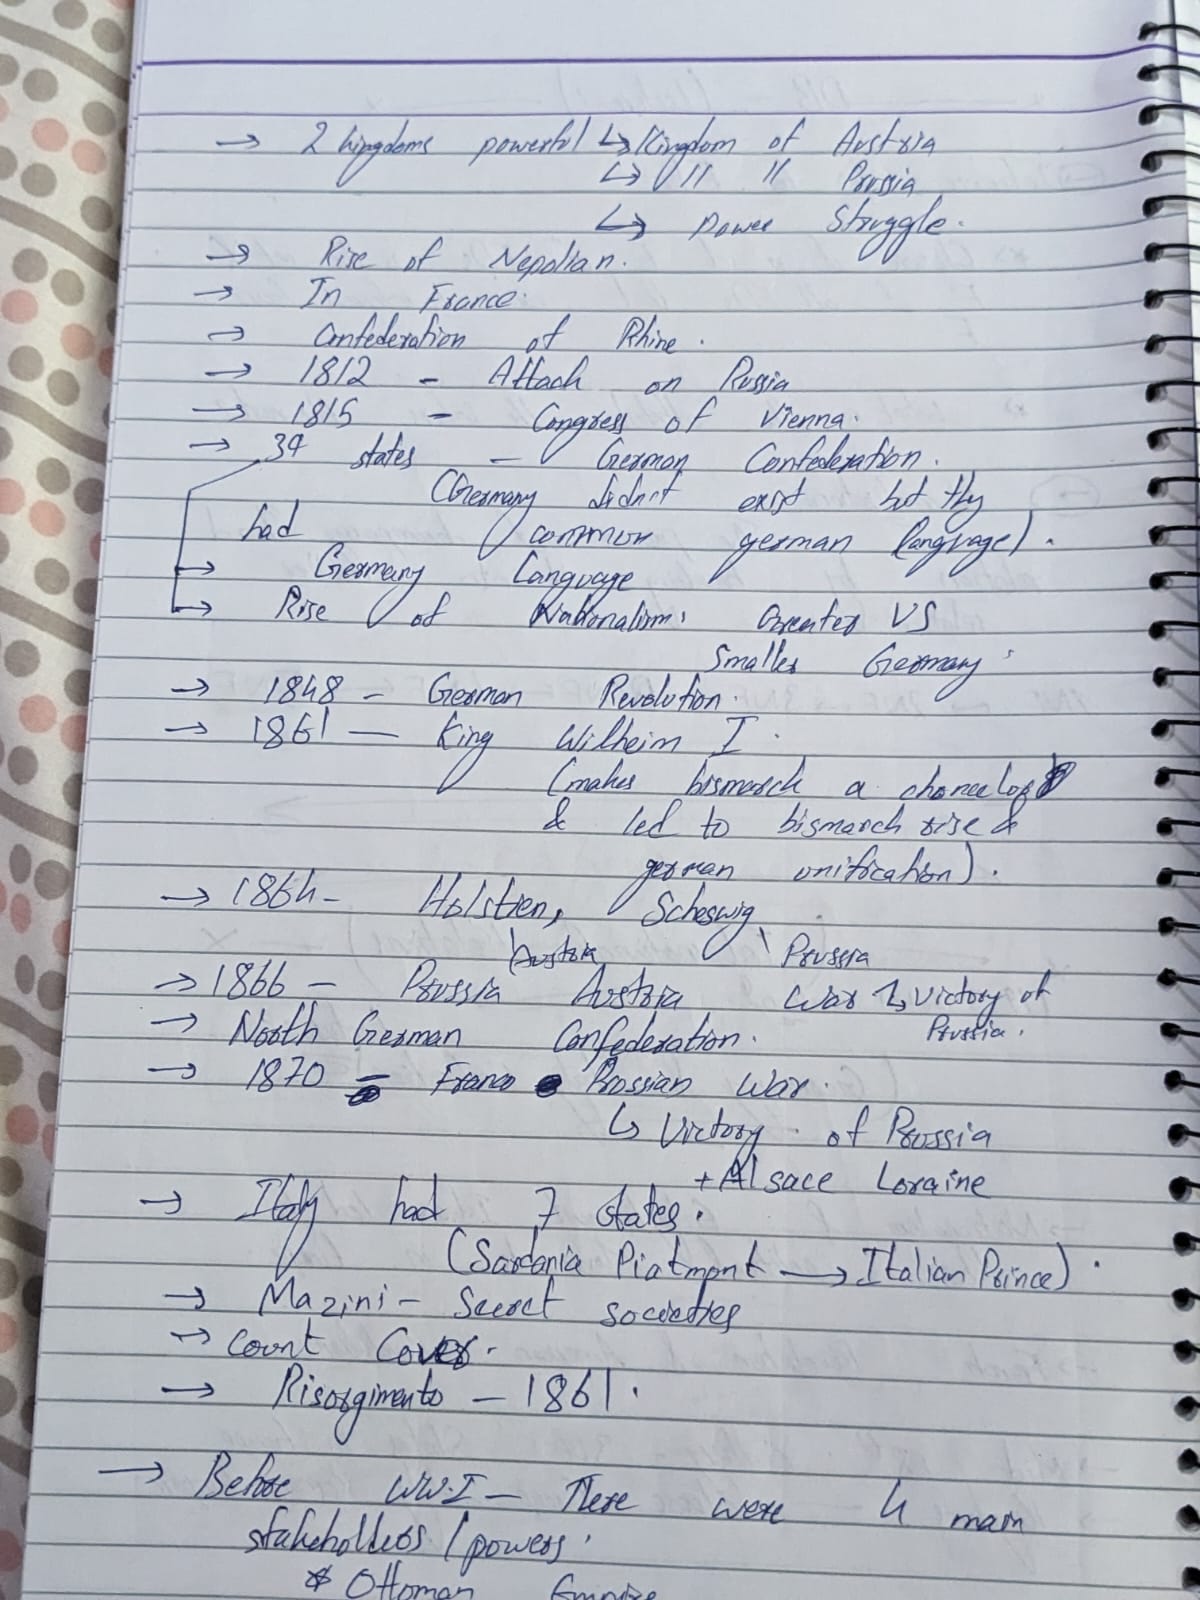 → 2 kingdoms powerful ↳ Kingdom of Austria
↳ " " Prussia
↳ Power Struggle.
→ Rise of Nepolian.
→ In France.
→ Confederation of Rhine.
→ 1812 - Attack on Russia
→ 1815 - Congress of Vienna.
→ 39 states - German Confederation.
(Germany didnt exist but they
had common german language).
→ Germany Language
→ Rise of Nationalism. Greater VS
Smaller Germany.
→ 1848 - German Revolution.
→ 1861 - King Wilheim I.
(makes bismarck a chancelor
& led to bismarck rise &
german unification).
→ 1864 - Holstien, Scheswig
Austria Prussia
→ 1866 - Prussia Austria war ↳ Victory of
Prussia.
→ North German Confederation.
→ 1870 - Franco Prossian War.
↳ Victory of Prussia
+ Alsace Loraine
→ Italy had 7 states.
(Sardania Piatmont → Italian Prince).
→ Mazini - Secret societies
→ Count Cover.
→ Risorgimento - 1861.
→ Before WW.I - There were 4 main
stakeholders / powers.
* Ottoman Empire